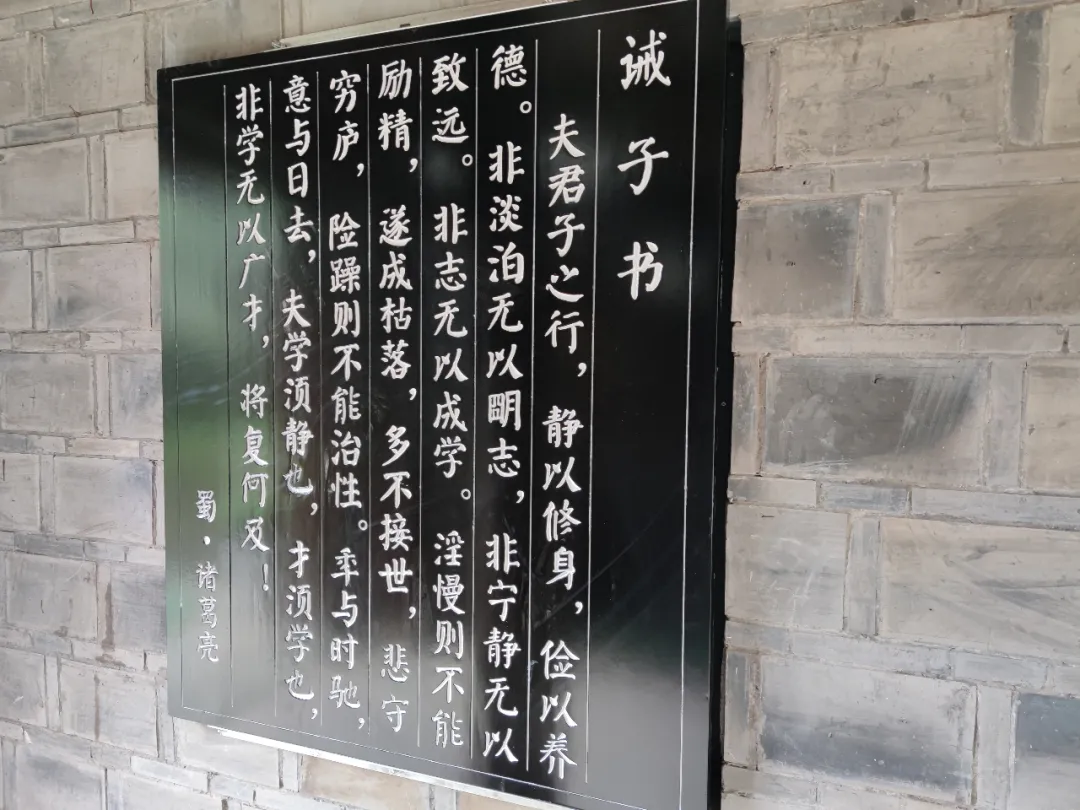 诫子书
夫君子之行，静以修身，俭以养
德。非淡泊无以明志，非宁静无以
致远。非志无以成学。淫慢则不能
励精，遂成枯落，多不接世，悲守
穷庐，险躁则不能治性。年与时驰，
意与日去，夫学须静也，才须学也，
非学无以广才，将复何及！
蜀·诸葛亮